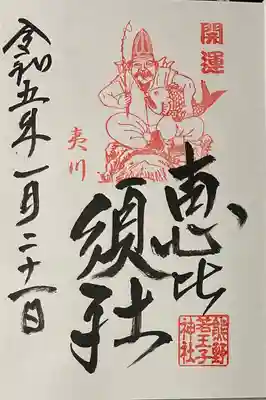 開運
恵比
須社
夷川
熊野
若王子
神社
令和五年一月二十一日